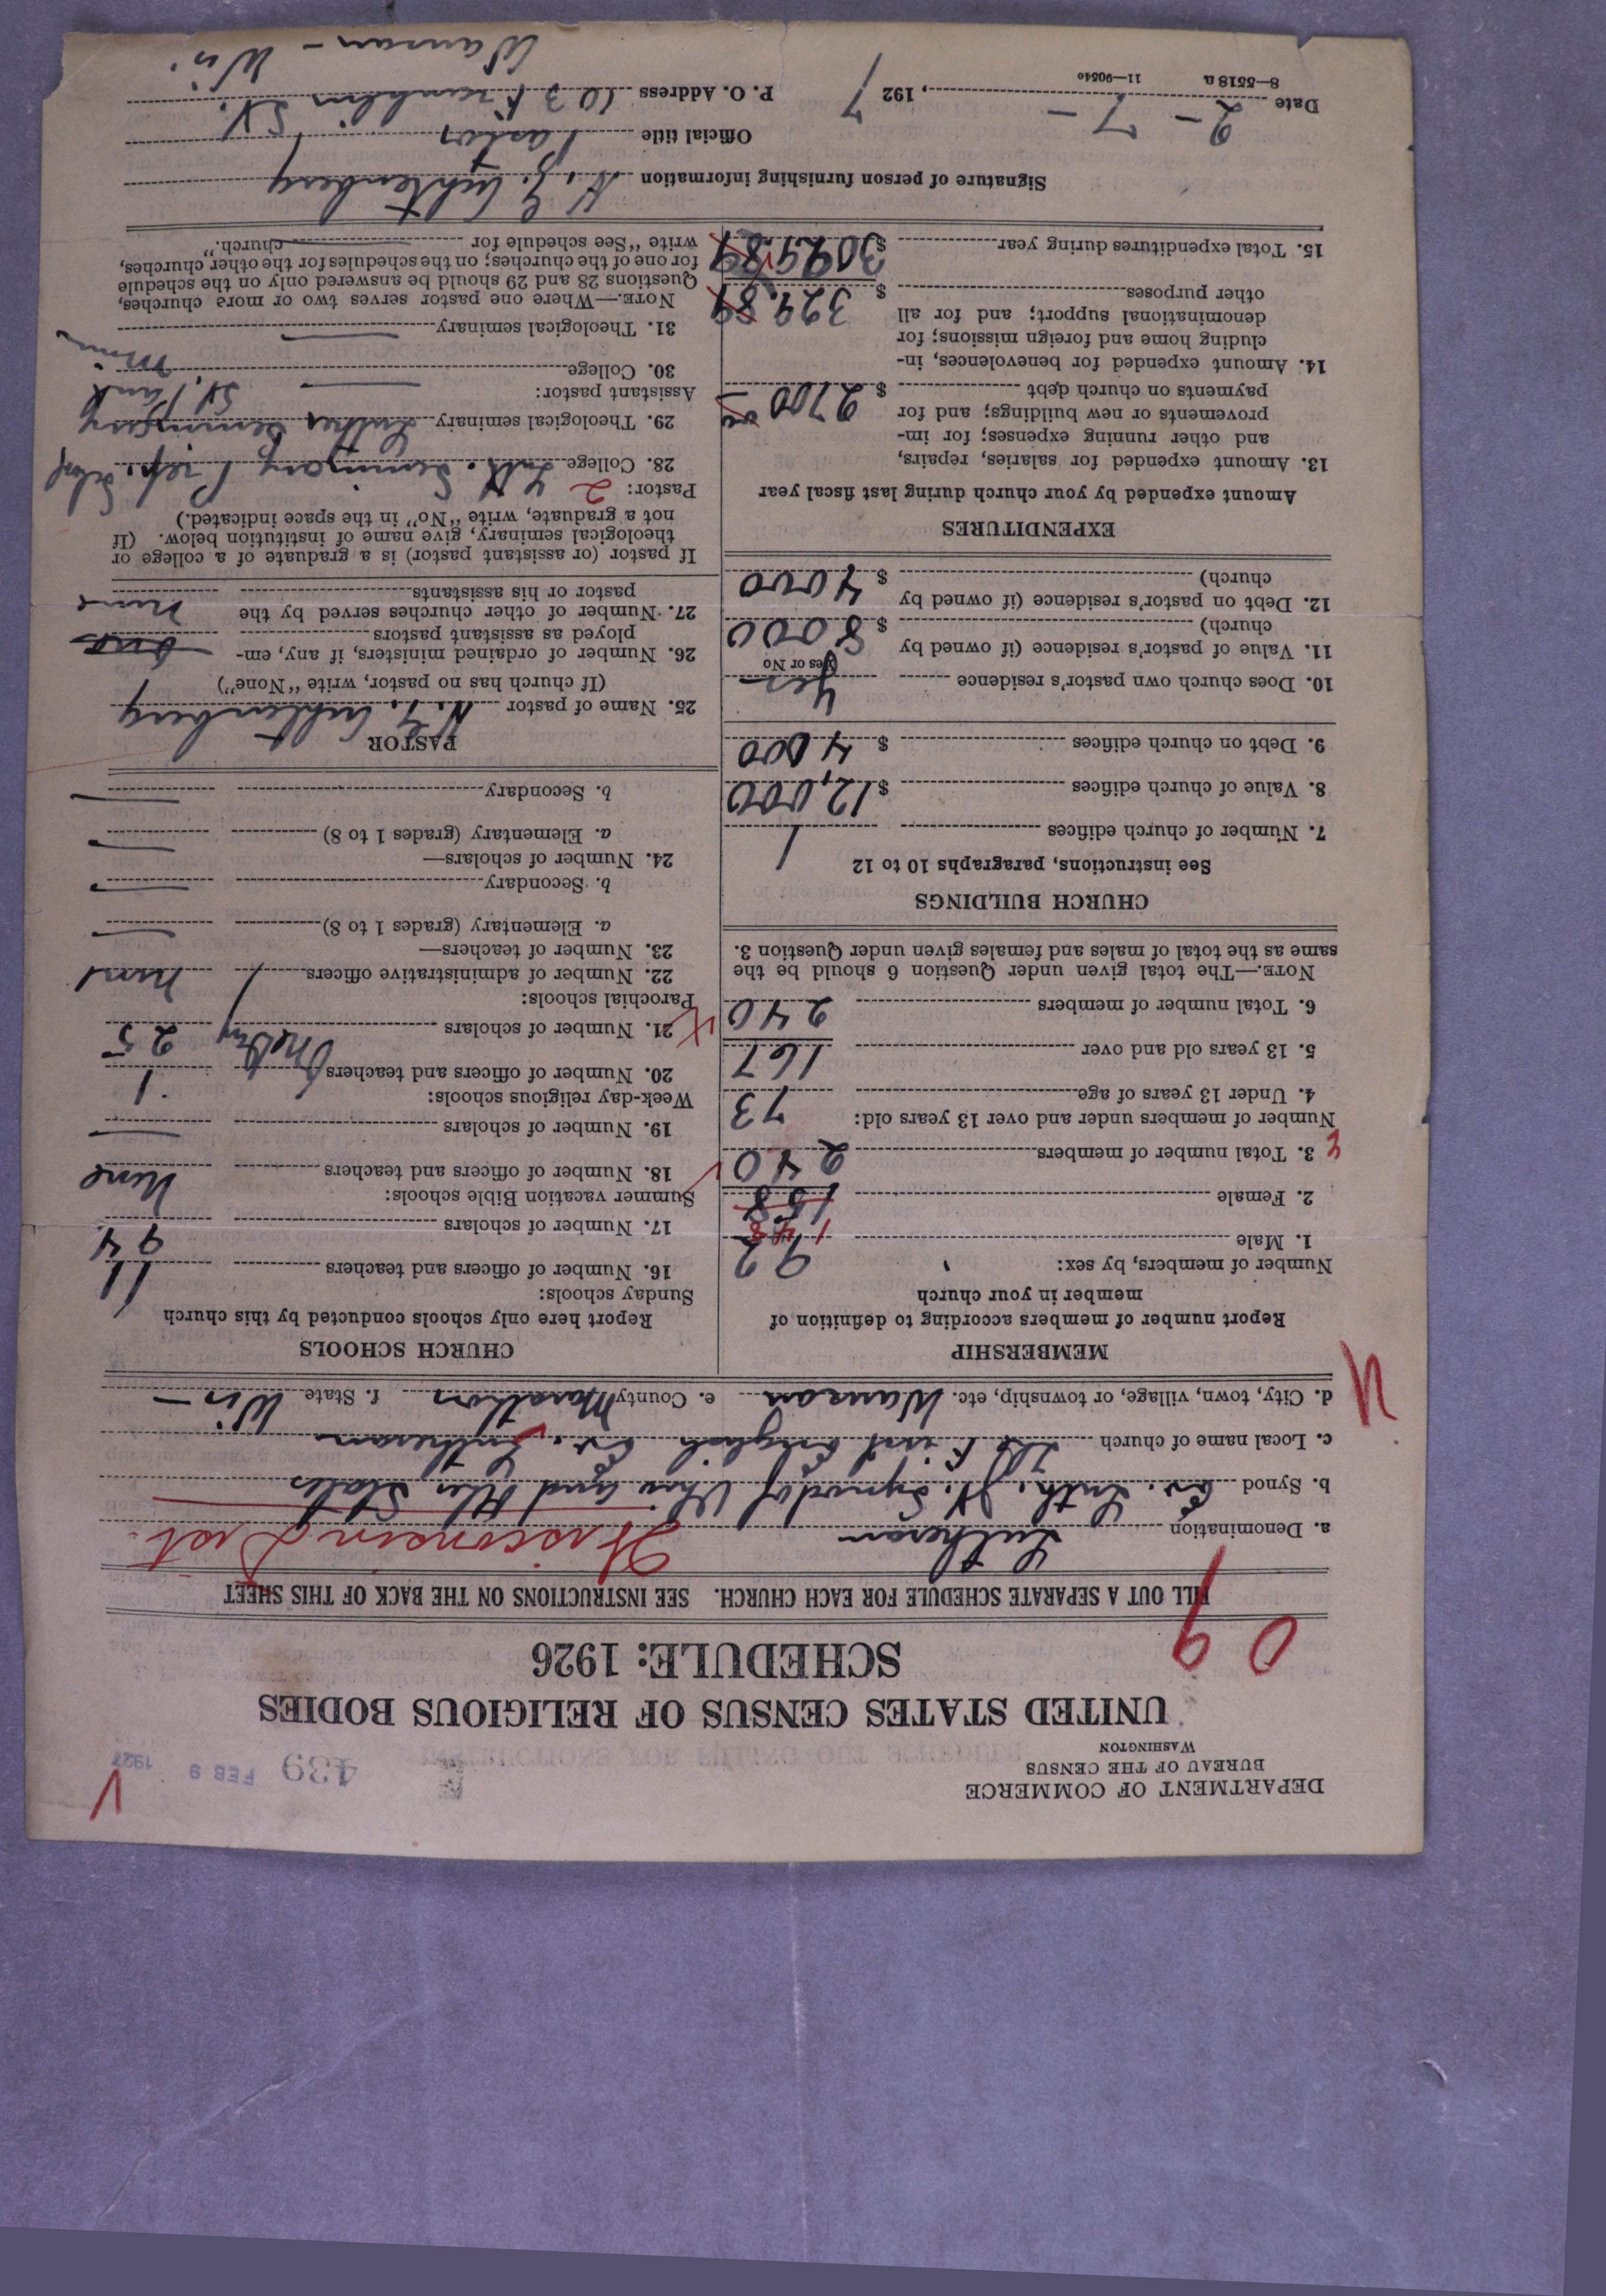 DEPARTMENT OF COMMERCE
BUREAU OF THE CENSUS
WASHINGTON
439 FEB 9 1927
UNITED STATES CENSUS OF RELIGIOUS BODIES
SCHEDULE: 1926
09
FILL OUT A SEPARATE SCHEDULE FOR EACH CHURCH. SEE INSTRUCTIONS ON THE BACK OF THIS SHEET
a. Denomination Lutheran Wisconsin Dist.
b. Synod Ev. Luth. Jt. Synod of Ohio and Other States
c. Local name of church The First English Ev. Lutheran
d. City, town, village, or township, etc. Wausau e. County Marathon f. State Wis—
MEMBERSHIP
Report number of members according to definition of
member in your church
Number of members, by sex:
1. Male 92
2. Female 148 158
3. Total number of members 240
Number of members under and over 13 years old:
4. Under 13 years of age 73
5. 13 years old and over 167
6. Total number of members 240
NOTE.—The total given under Question 6 should be the
same as the total of males and females given under Question 3.
CHURCH BUILDINGS
See instructions, paragraphs 10 to 12
7. Number of church edifices 1
8. Value of church edifices $12,000
9. Debt on church edifices $ 4000
10. Does church own pastor's residence Yes
Yes or No
11. Value of pastor's residence (if owned by
church) $ 8000
12. Debt on pastor's residence (if owned by
church) $ 4000
EXPENDITURES
Amount expended by your church during last fiscal year
13. Amount expended for salaries, repairs,
and other running expenses; for im-
provements or new buildings; and for
payments on church debt $ 2700
14. Amount expended for benevolences, in-
cluding home and foreign missions; for
denominational support; and for all
other purposes $ 329.89
15. Total expenditures during year $ 3029.89
CHURCH SCHOOLS
Report here only schools conducted by this church
Sunday schools:
16. Number of officers and teachers 11
17. Number of scholars 94
Summer vacation Bible schools:
18. Number of officers and teachers None
19. Number of scholars
Week-day religious schools:
20. Number of officers and teachers 1
21. Number of scholars 25
Parochial schools:
22. Number of administrative officers None
23. Number of teachers—
a. Elementary (grades 1 to 8)
b. Secondary
24. Number of scholars—
a. Elementary (grades 1 to 8)
b. Secondary
PASTOR
25. Name of pastor
(If church has no pastor, write "None")
26. Number of ordained ministers, if any, em-
ployed as assistant pastors
27. Number of other churches served by the
pastor or his assistants None
If pastor (or assistant pastor) is a graduate of a college or
theological seminary, give name of institution below. (If
not a graduate, write "No" in the space indicated.)
Pastor: 2
28. College Luth. Seminary Prep.
29. Theological seminary Luther Seminary St. Paul
Assistant pastor: Minn
30. College
31. Theological seminary
NOTE.—Where one pastor serves two or more churches,
Questions 28 and 29 should be answered only on the schedule
for one of the churches; on the schedules for the other churches,
write "See schedule for church."
Signature of person furnishing information
Official title Pastor
Date 2-7-, 1927 P. O. Address 103 Franklin St.
8—5518 a 11—9054o Wausau - Wis.